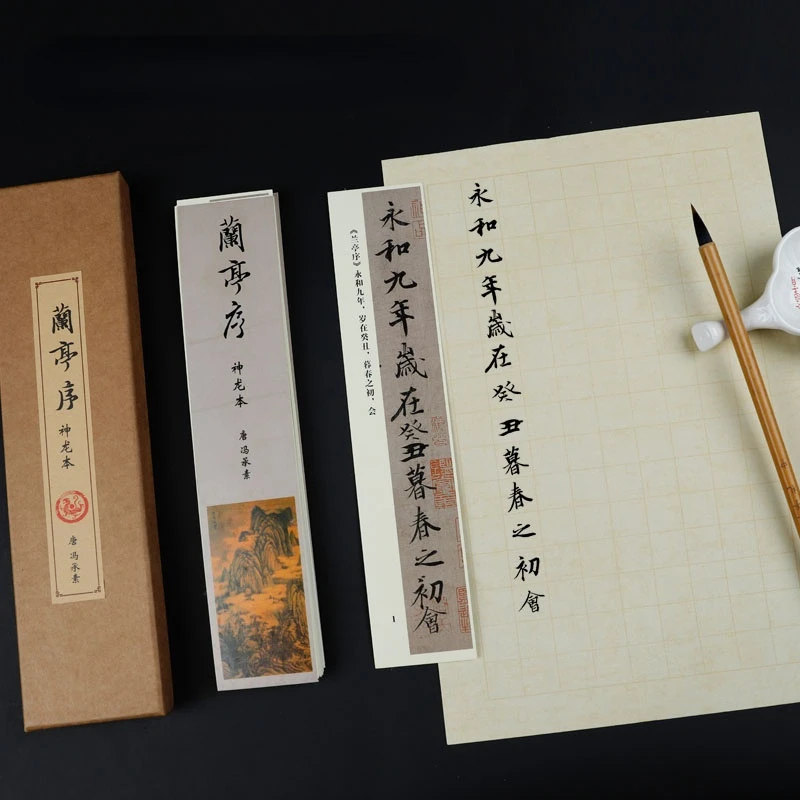 蘭亭序
神龙本
唐 冯承素
蘭亭序
神龙本
唐 冯承素
《兰亭序》永和九年，岁在癸丑，暮春之初，会
永和九年歲在癸丑暮春之初會
1
永和九年歲在癸丑暮春之初會